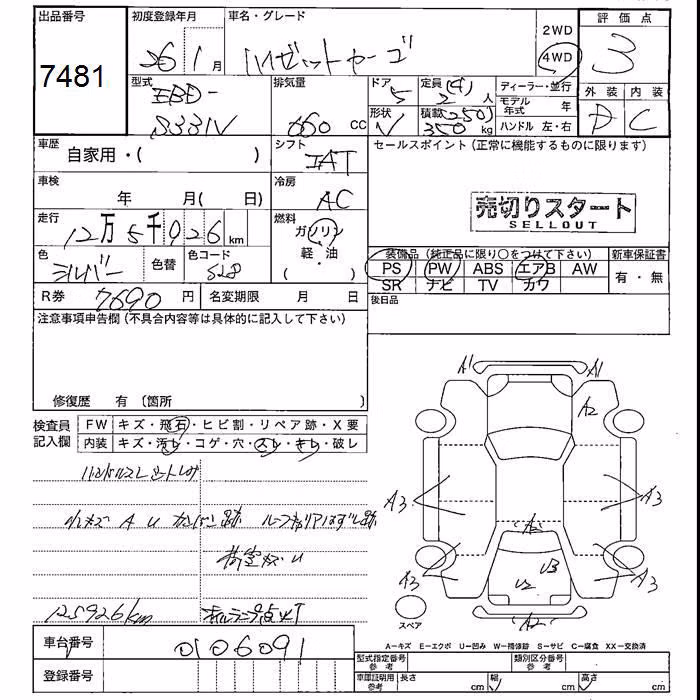 出品番号 初度登録年月 車名・グレード 2WD 評価点
7481 26 1月 ハイゼットカーゴ 4WD 3
型式 排気量 ドア 定員(4) ディーラー・並行 外装 内装
EBD- 5 2人 モデル年式 年 D C
S331V 660 CC 形状 V 積載(250) 350kg ハンドル 左・右
車歴 自家用・( ) シフト IAT セールスポイント(正常に機能するものに限ります)
車検 年 月( 日) 冷房 AC
売切りスタート
SELLOUT
走行 12万5千926km 燃料 ガソリン
軽・油
( )
色 シルバー 色替 色コード S28
装備品(純正品に限り○をつけて下さい) 新車保証書
PS PW ABS エアB AW 有・無
SR ナビ TV カワ
R券 7690円 名変期限 月 日 後日品
注意事項申告欄(不具合内容等は具体的に記入して下さい)
修復歴 有(箇所 )
検査員記入欄 FW キズ・飛石・ヒビ割・リペア跡・X要
内装 キズ・汚レ・コゲ・穴・スレ・キレ・破レ
ハンドルスレ シートレザ
小キズ A U カンバン跡
荷室キズ U
125926km オイルランプ点灯
A1 A1
A2
A3 A3
A2
U2 U3
A3 A3
A2
スペア
A-キズ E-エクボ U-凹み W-補修跡 S-サビ C-腐食 XX-交換済
車台番号 0106091
登録番号
型式指定番号 参考 類別区分番号 参考
車庫証明用 参考 長さ cm 幅 cm 高さ cm